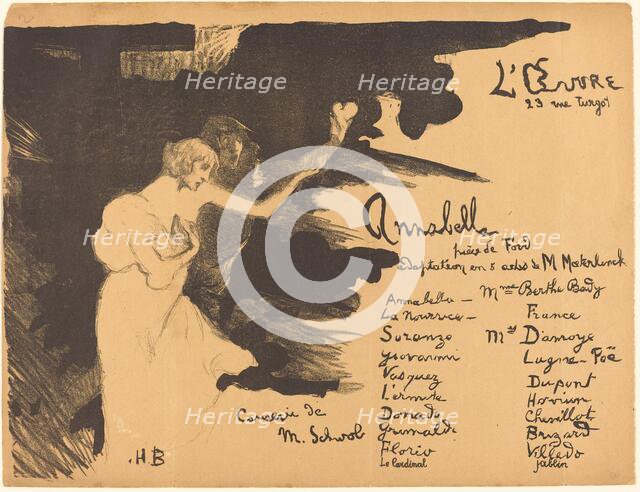 2
L'Œuvre
23 rue Turgot
Annabella
pièce de Ford
adaptation en 5 actes de M Maeterlinck
Annabella — Mme Berthe Bady
La Nourrice — France
Soranzo Mrs Damoye
Giovanni Lugné-Poë
Vasquez Dupont
L'ermite
Donado Chevillot
Grimaldi Brizard
Florio Villedo
Le Cardinal Jablin
Causerie de
M. Schwob
.HB
Heritage Heritage
Heritage Heritage Heritage
Heritage Heritage